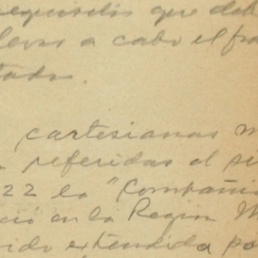 requisitos que deb
llevar a cabo el fra
tado.
cartesianas m
referidas al si
22 la "Compañi
ció en la Region M
ido extendida po